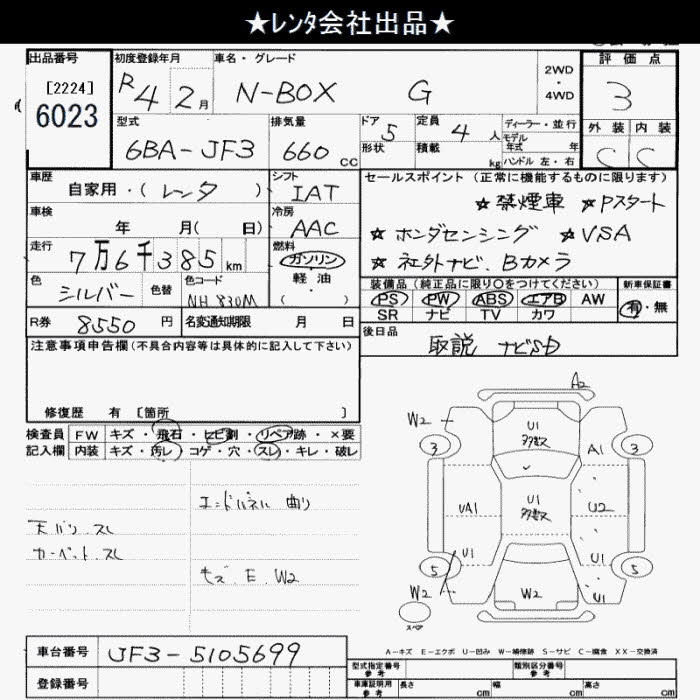 ★レンタ会社出品★
出品番号 初度登録年月 車名・グレード 2WD・4WD 評価点
[2224] R4 2月 N-BOX G 3
6023
型式 排気量 ドア 定員 ディーラー・並行
6BA-JF3 660 CC 5 4人 モデル年式 年 外装 内装
形状 積載 kg ハンドル 左・右 C C
車歴 シフト セールスポイント (正常に機能するものに限ります)
自家用・(レンタ) IAT ★禁煙車 ★Pスタート
車検 冷房
年 月( 日) AAC ★ホンダセンシング ★VSA
走行 燃料
7万6千385km ガソリン ★社外ナビ、Bカメラ
色 色替 色コード 軽油 装備品 (純正品に限り○をつけてください) 新車保証書
シルバー NH830M ( ) PS PW ABS エアB AW 有・無
SR ナビ TV カワ
R券 8550円 名変通知期限 月 日 後日品
取説 ナビSD
注意事項申告欄 (不具合内容等は具体的に記入して下さい)
修復歴 有 [箇所 ]
検査員 FW キズ・飛石・ヒビ割・リペア跡・×要
記入欄 内装 キズ・汚レ・コゲ・穴・スレ・キレ・破レ
エンドパネル 曲り
天バリ スレ
カーペット スレ
キズ、E、W2
A2
W2 U1 多数
3 A1 3
UA1 U1 多数 U2
U1 U1
5 5
W2 W2 U1
スペア
A-キズ E-エクボ U-凹み W-補修跡 S-サビ C-腐食 XX-交換済
車台番号 JF3-5105699 型式指定番号 参考 類別区分番号 参考
登録番号 車庫証明用 参考 長さ cm 幅 cm 高さ cm